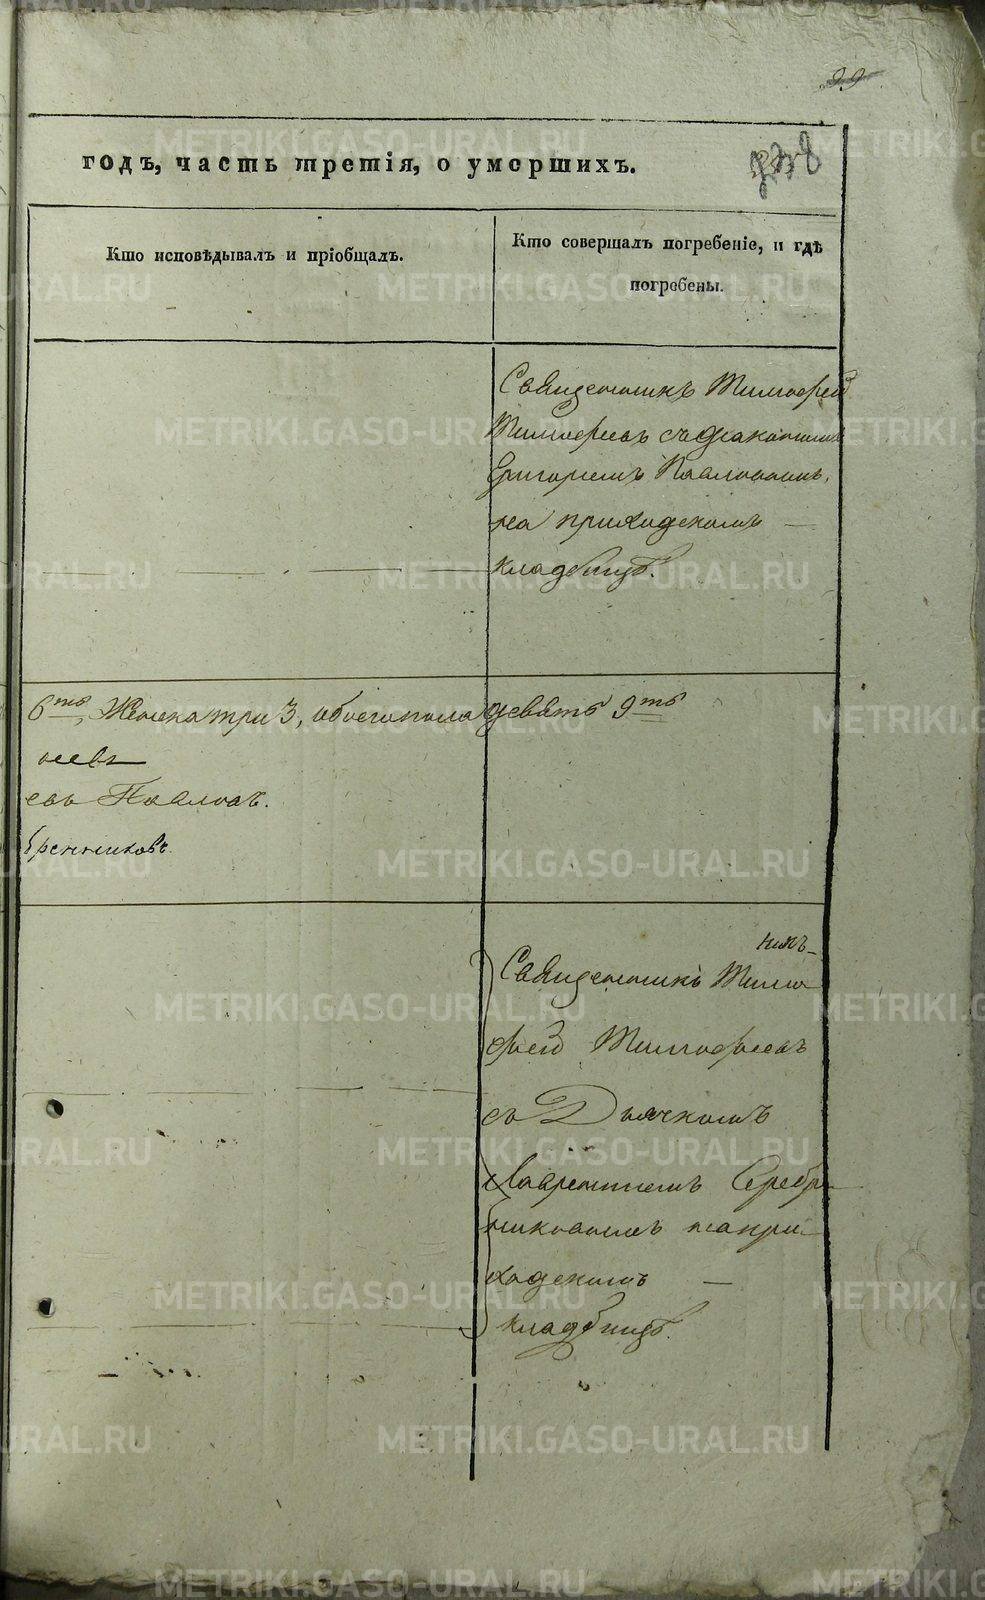 99
годъ, часть третія, о умершихъ.
Кто исповѣдывалъ и пріобщалъ.
Кто совершалъ погребеніе, и гдѣ
погребены.
Священникъ Тимофей
Тимофеевъ съ діакономъ
Григоріемъ Павловымъ,
на приходскомъ
кладбищѣ.
6ть, Женска три 3, обоего пола девять 9ть
евъ Павловъ.
бренниковъ
никъ
Священникъ Тимо
фей Тимофеевъ
съ Дьячкомъ
Лаврентіемъ Серебре
никовымъ на при
ходскомъ
кладбищѣ.
METRIKI.GASO-URAL.RU